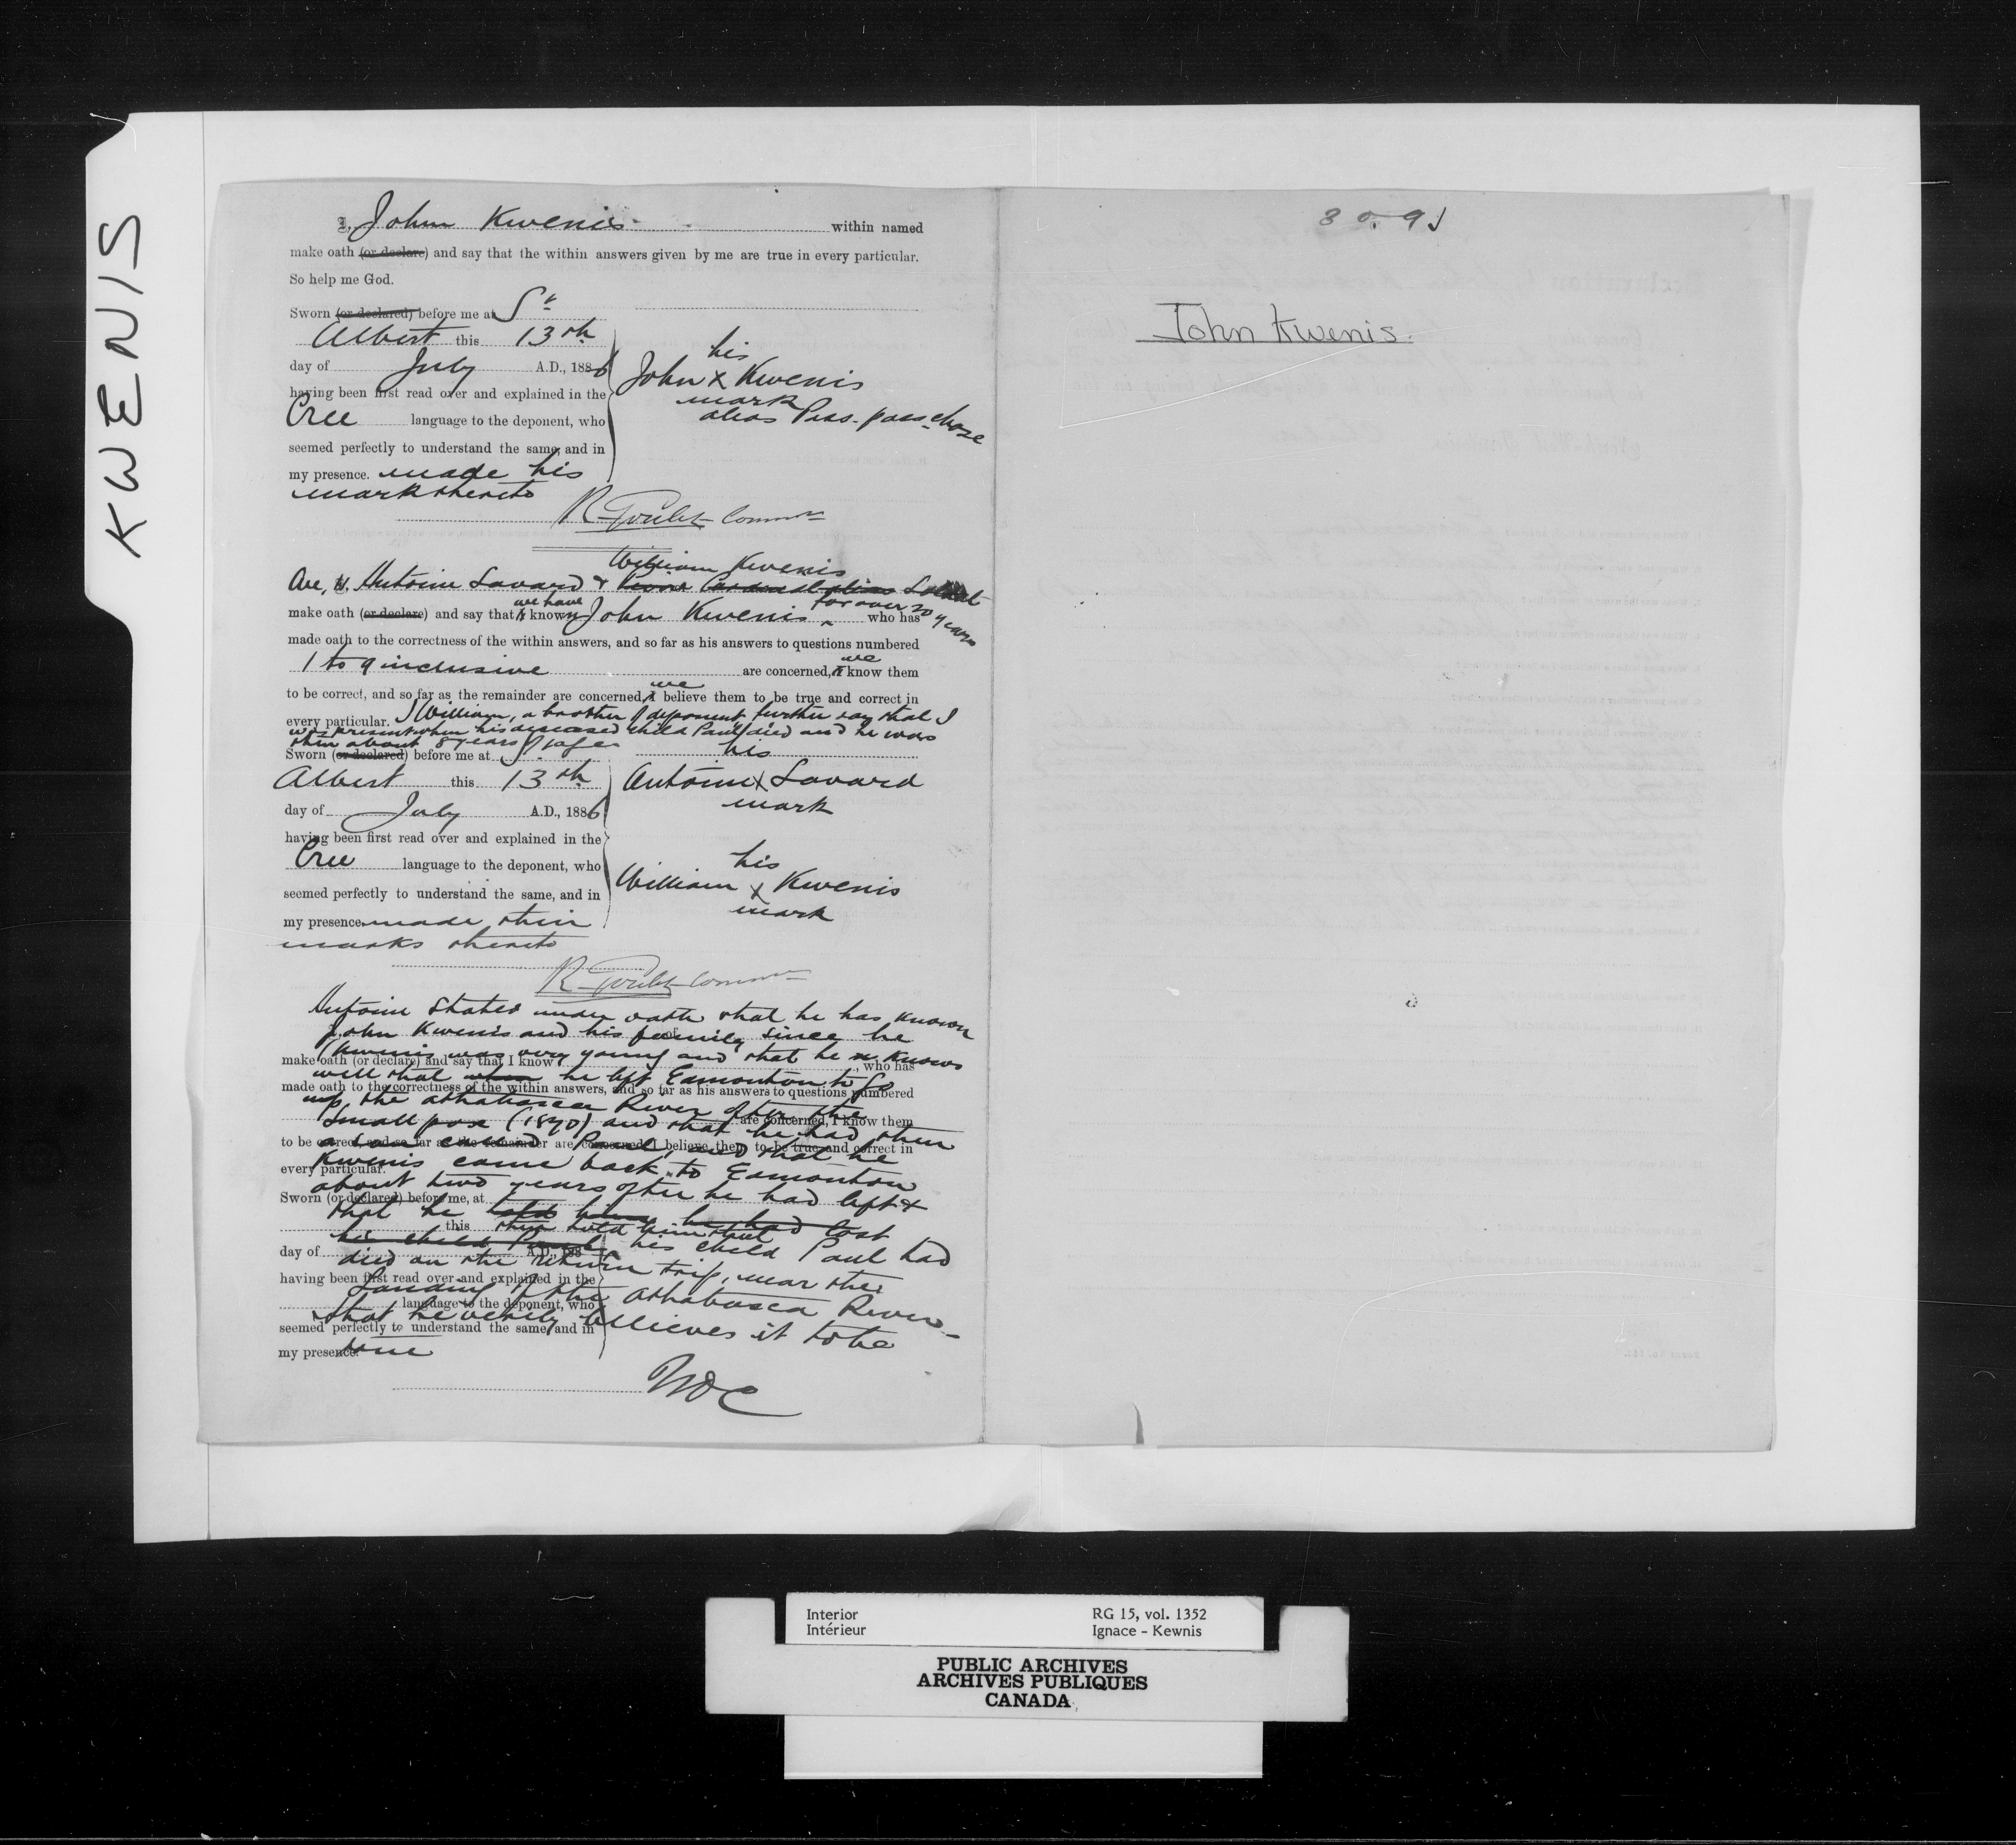 KWENIS
I, John Kwenis within named
make oath (or declare) and say that the within answers given by me are true in every particular.
So help me God.
Sworn (or declared) before me at St
Albert this 13th
day of July A.D., 1886
having been first read over and explained in the
Cree language to the deponent, who
seemed perfectly to understand the same, and in
my presence. made his
mark thereto
his
John X Kwenis
mark
alias Pass-pass-chase
R Goulet Commr
William Kwenis
We, Antoine Savard &
we have for over 20 years
make oath (or declare) and say that I known John Kwenis who has
made oath to the correctness of the within answers, and so far as his answers to questions numbered
1 to 9 inclusive are concerned, I we know them
to be correct, and so far as the remainder are concerned, I we believe them to be true and correct in
every particular. I William, a brother of deponent, further say that I
was present when his deceased child Paul died and he was
then about 8 years of age
Sworn (or declared) before me at S.
Albert this 13th
day of July A.D., 1886
having been first read over and explained in the
Cree language to the deponent, who
seemed perfectly to understand the same, and in
my presence made their
marks thereto
his
Antoine X Savard
mark
his
William X Kwenis
mark
R Goulet Commr
Antoine States under oath that he has known
John Kwenis and his family since he
(Kwenis was very young and that he knows
make oath (or declare) and say that I know who has
well that when he left Edmonton to go
made oath to the correctness of the within answers, and so far as his answers to questions numbered
up the Athabasca River after the
small pox (1870) and that he had then
are concerned, I know them
a son called Paul, and that he
to be correct, and so far as the remainder are concerned, I believe them to be true and correct in
Kwenis came back to Edmonton
every particular.
about two years after he had left &
Sworn (or declared) before me, at
that he told him he had lost
this then told him that
his child Paul his child Paul had
day of A.D., 188
died on the return trip, near the
having been first read over and explained in the
Landing of the Athabasca River
language to the deponent, who
that he verily believes it to be
seemed perfectly to understand the same, and in
my presence. true
NOC
John Kwenis.
Interior RG 15, vol. 1352
Intérieur Ignace - Kewnis
PUBLIC ARCHIVES
ARCHIVES PUBLIQUES
CANADA